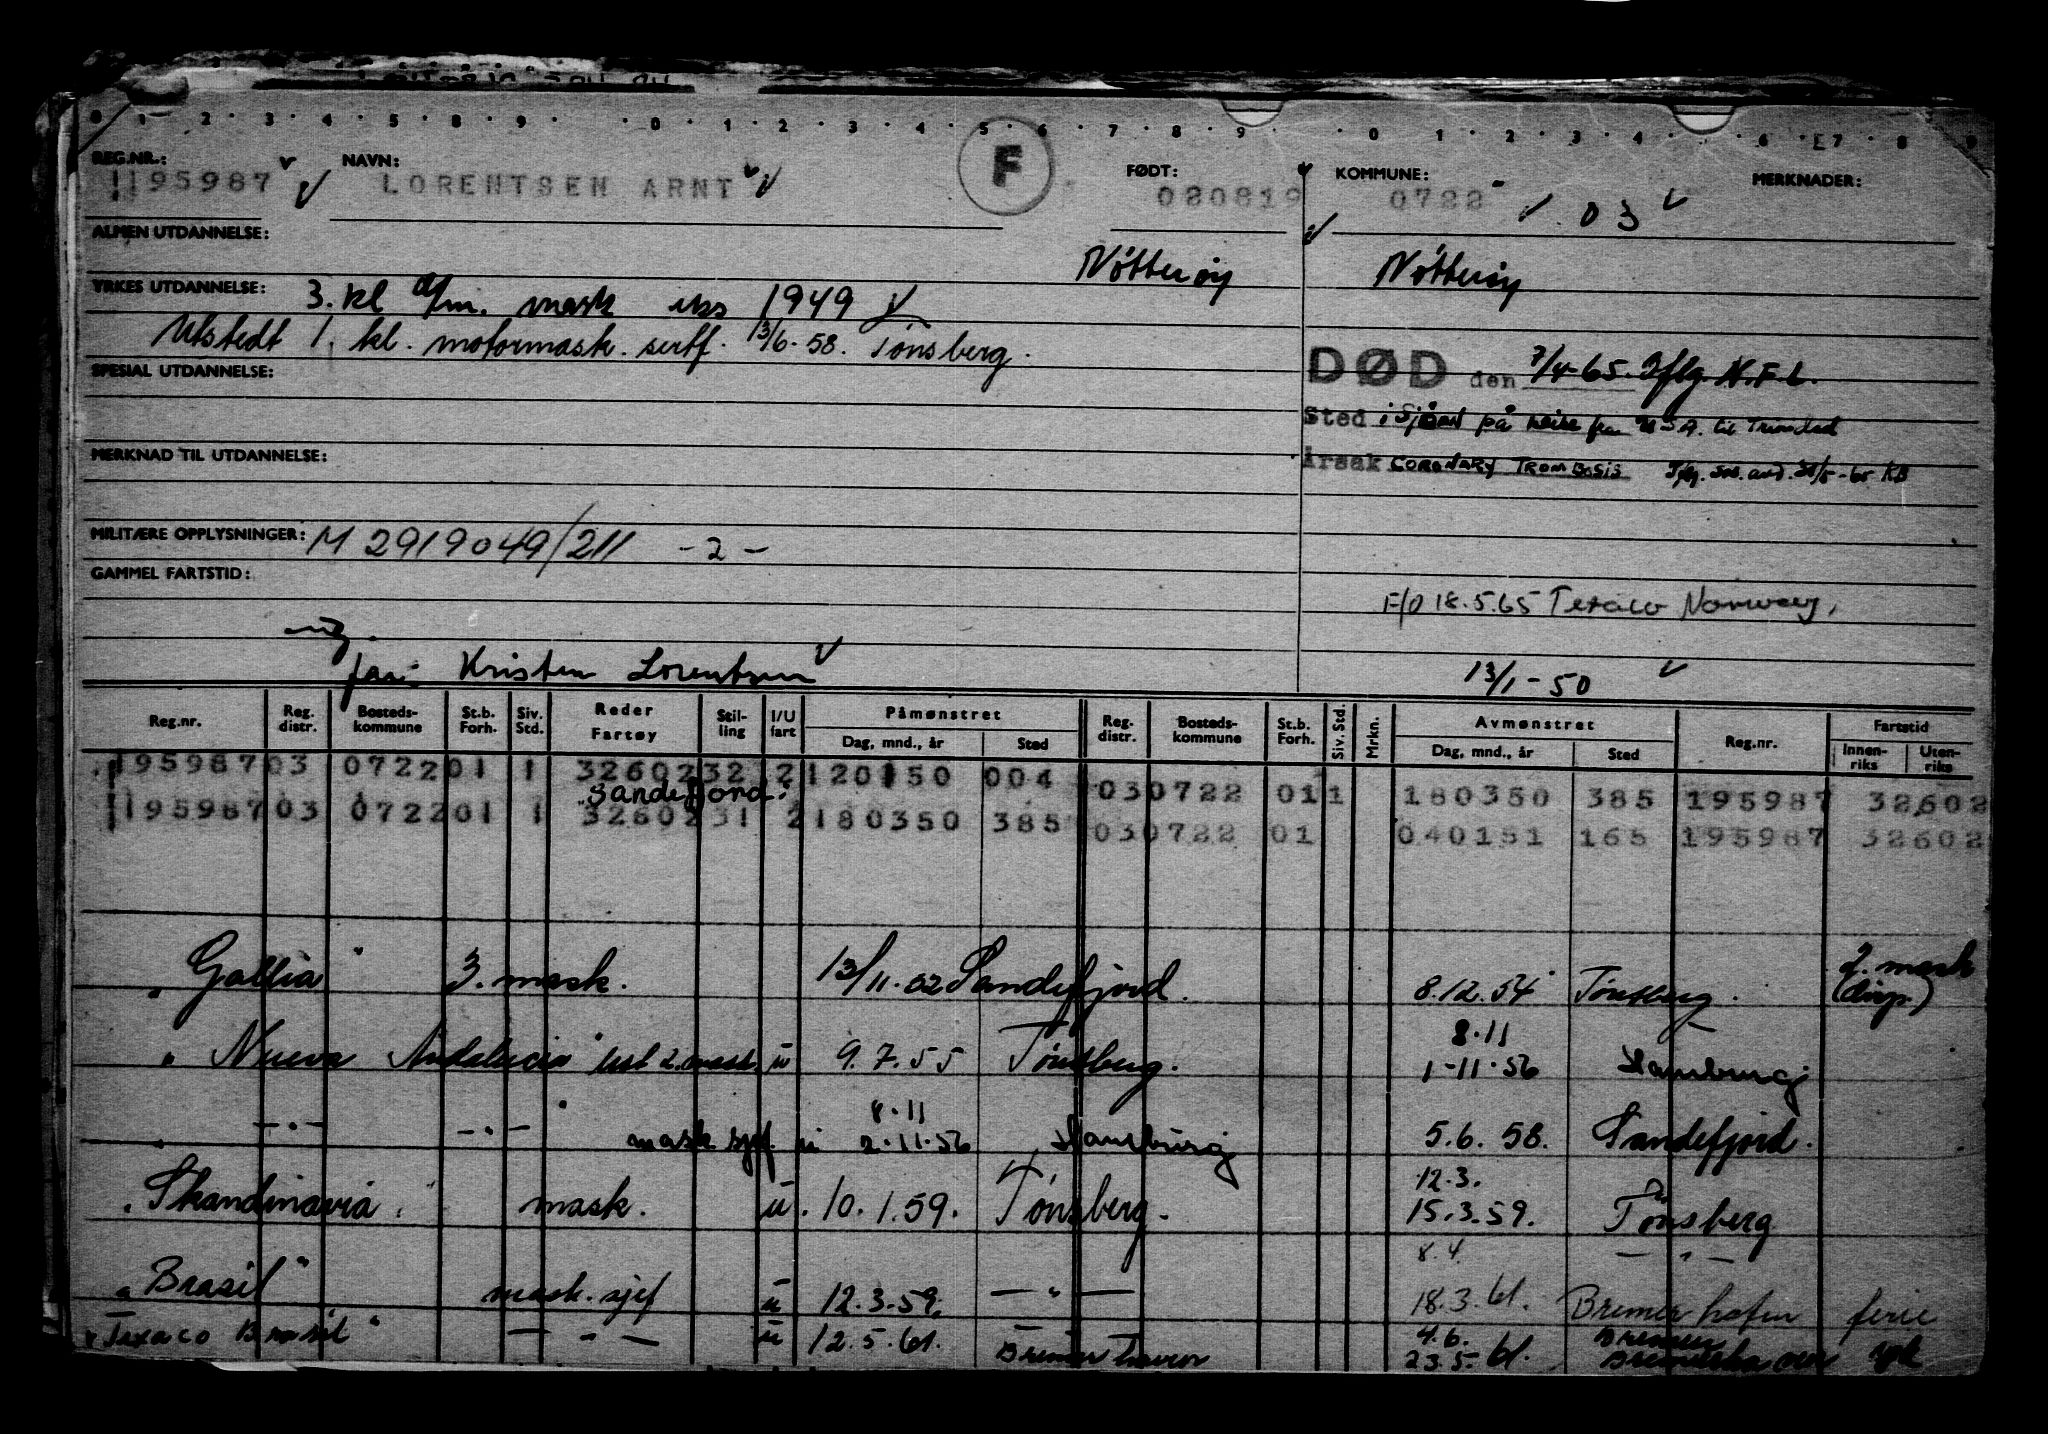 0 1 2 3 4 5 6 8 9 0 1 2 3 4 5 6 7 8 9 0 1 2 3 4 6 7 8 9
REG.NR.: NAVN: F FØDT: KOMMUNE: MERKNADER:
195987 LORENTSEN ARNT 020819 0722 03
ALMEN UTDANNELSE:
Nøtterøy Nøtterøy
YRKES UTDANNELSE: 3. kl d/m. mask eks 1949
Utstedt 1. kl. motormask. sertf. 13/6-58. Tønsberg.
DØD den 7/4-65. Iflg. N.F.L.
SPESIAL UTDANNELSE:
Sted i sjøen på reise fra USA. til Trinidad
MERKNAD TIL UTDANNELSE:
Årsak CORONARY TROMBOSIS Iflg. -65 KB
MILITÆRE OPPLYSNINGER: M 2919049/211 -2-
GAMMEL FARTSTID:
F/O 18.5.65 Texaco Norway,
ug.
far: Kristen Lorentsen 13/1-50
Reg.nr. Reg. distr. Bosteds-kommune St.b. Forh. Siv. Std. Reder Fartøy Stil-ling I/U fart Påmønstret Dag, mnd., år Sted Reg-distr. Bosteds-kommune St.b. Forh. Siv. Std. Mrkn. Avmønstret Dag, mnd., år Sted Reg.nr. Fartstid Innen-riks Uten-riks
195987 03 0722 01 1 32602 32 2 120150 004 03 0722 01 1 180350 385 195987 32602
"Sandefjord"
195987 03 0722 01 1 32602 31 2 180350 385 03 0722 01 040151 165 195987 32602
"Gallia" 3. mask. 13/11.52 Sandefjord. 8.12.54 Tønsberg. 2. mask (disp.)
8.11
"Nueva Andalucia" 2. mask. u 9.7.55 Tønsberg. 1-11.56 Hamburg
8.11
-"- -"- mask sjef u 2.11.56 Hamburg 5.6.58. Sandefjord.
12.3.
"Skandinavia" mask. u. 10.1.59. Tønsberg. 15.3.59. Tønsberg
8.4. -"-
"Brasil" mask. sjef u 12.3.59. -"- 18.3.61. Bremerhafen ferie
4.6. Bremen
"Texaco Brasil" -"- u 12.5.61. Bremerhaven 23.5.61. Bremerhaven syk